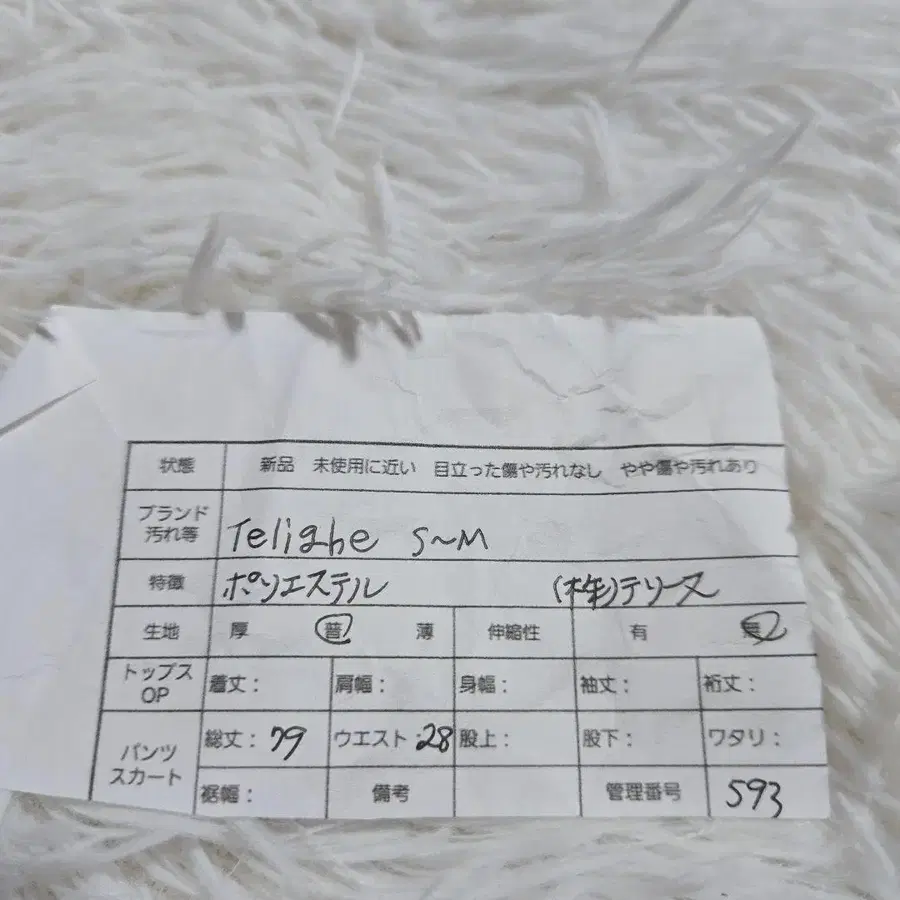 状態 新品 未使用に近い 目立った傷や汚れなし やや傷や汚れあり
ブランド
汚れ等 Telighe S~M
特徴 ポリエステル (株)テリース
生地 厚 普 薄 伸縮性 有 無
トップス
OP 着丈: 肩幅: 身幅: 袖丈: 裄丈:
パンツ
スカート 総丈: 79 ウエスト: 28 股上: 股下: ワタリ:
裾幅: 備考 管理番号 593